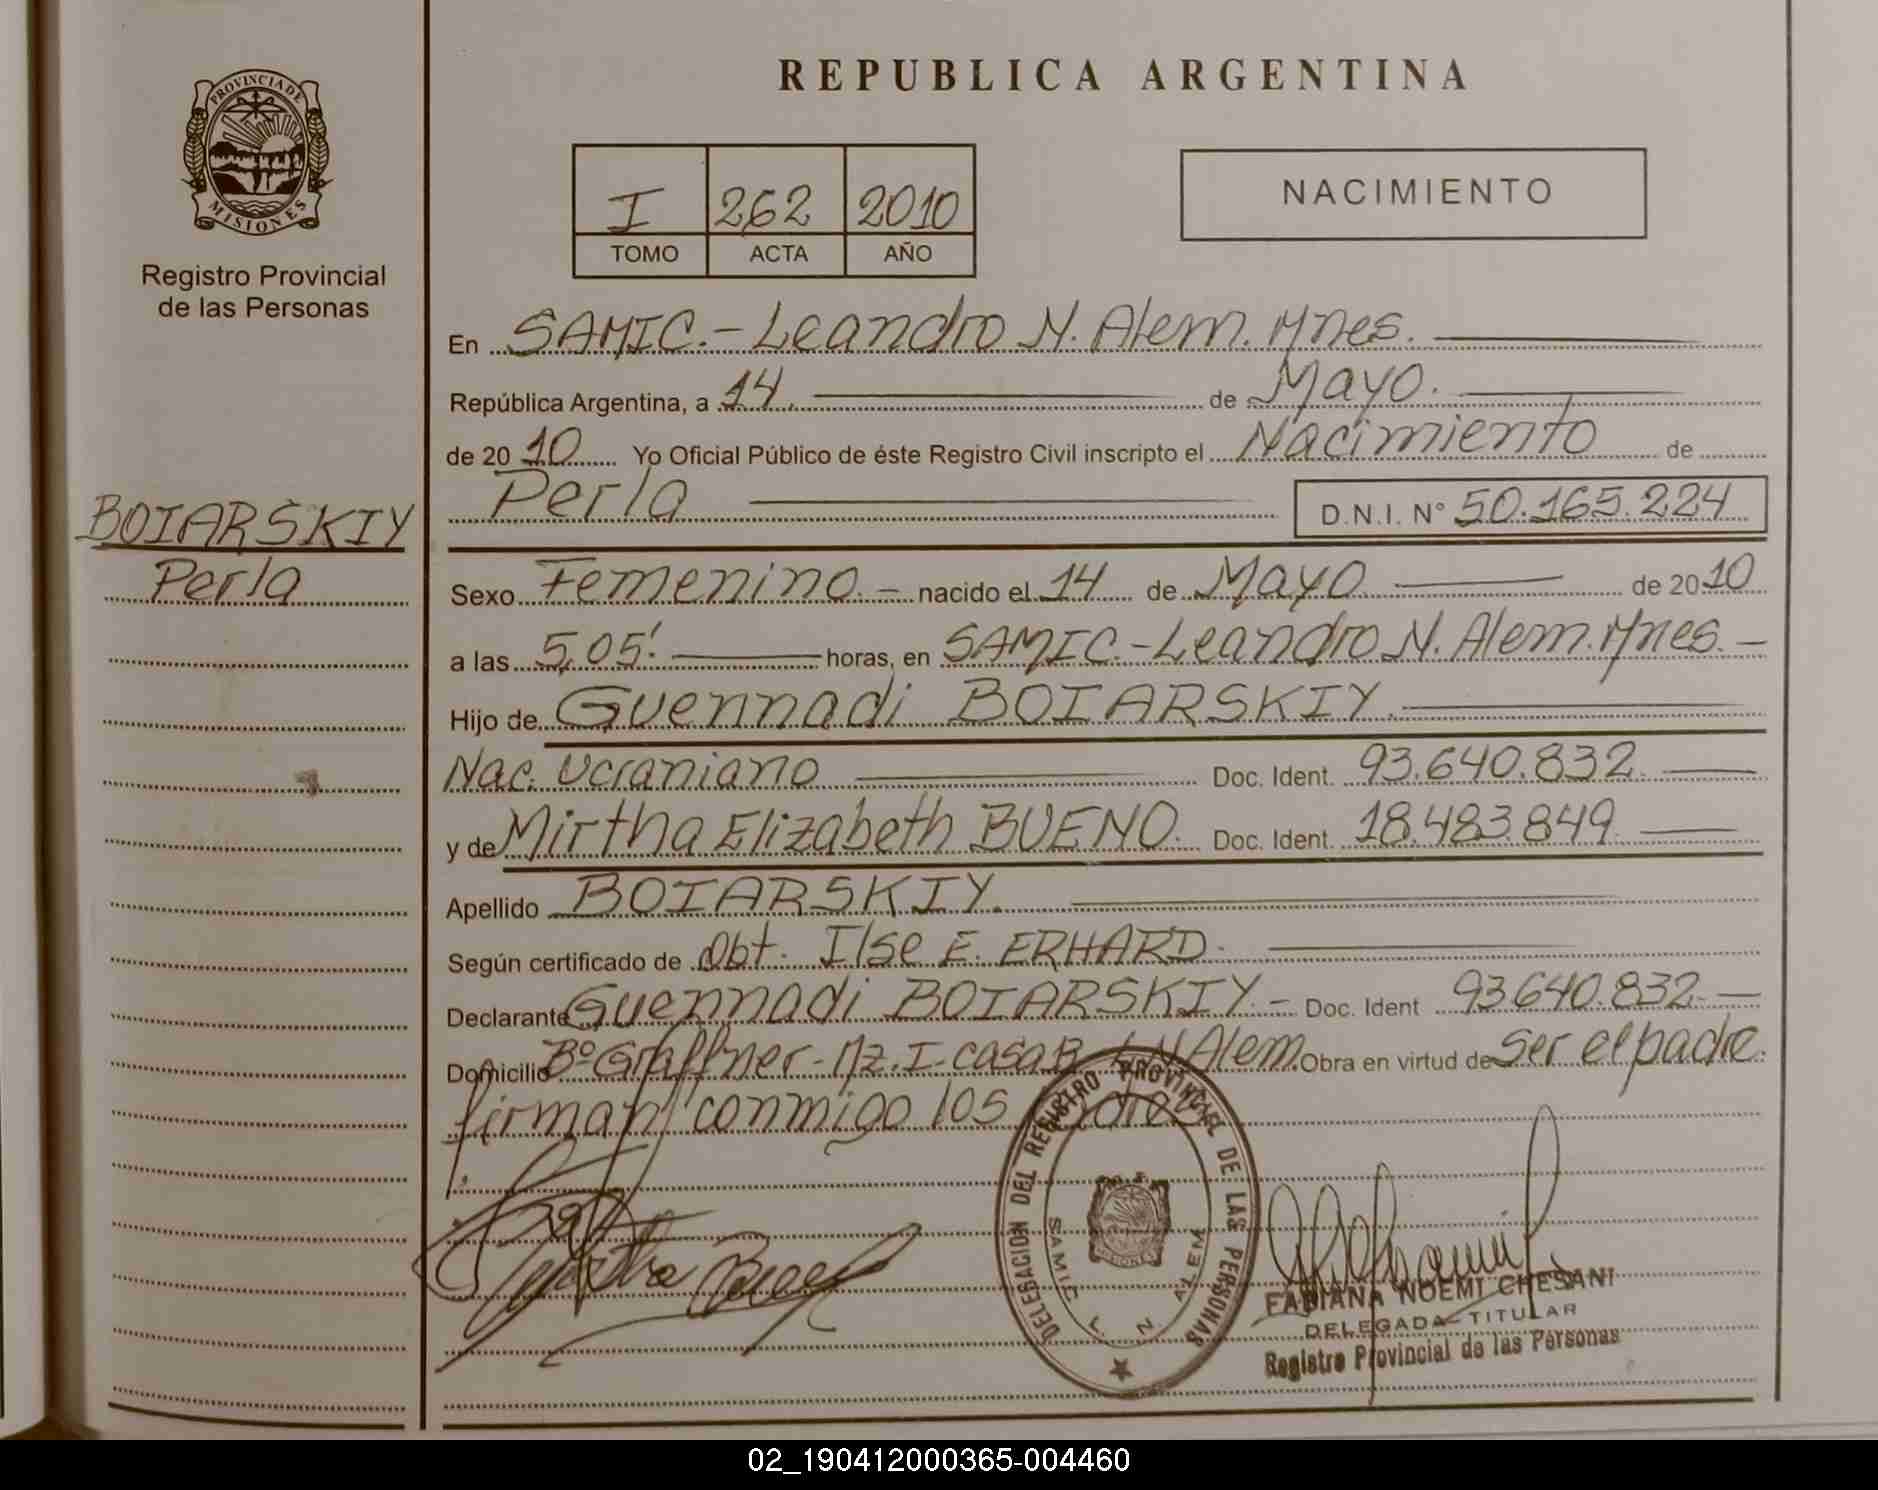 PROVINCIA DE
MISIONES
Registro Provincial
de las Personas
BOIARSKIY
Perla
REPUBLICA ARGENTINA
I 262 2010
TOMO ACTA AÑO
NACIMIENTO
En SAMIC.- Leandro N. Alem. Mnes.
República Argentina, a 14. de Mayo.
de 20 10 Yo Oficial Público de éste Registro Civil inscripto el Nacimiento de
Perla D.N.I. N° 50.165.224
Sexo Femenino.- nacido el 14 de Mayo de 20 10
a las 5,05'. horas, en SAMIC.-Leandro N. Alem. Mnes.-
Hijo de Guennadi BOIARSKIY.
Nac. Ucraniano Doc. Ident. 93.640.832.
y de Mirtha Elizabeth BUENO. Doc. Ident. 18.483.849
Apellido BOIARSKIY.
Según certificado de Obt. Ilse E. ERHARD.
Declarante Guennadi BOIARSKIY.- Doc. Ident 93.640.832.-
Domicilio B° Graffner-Mz.I-casa L N Alem. Obra en virtud de Ser el padre.
firman conmigo los
DELEGACION DEL REGISTRO PROVINCIAL DE LAS PERSONAS
SAMIC L. N. ALEM
FABIANA NOEMI CHESANI
DELEGADA TITULAR
Registro Provincial de las Personas
02_190412000365-004460